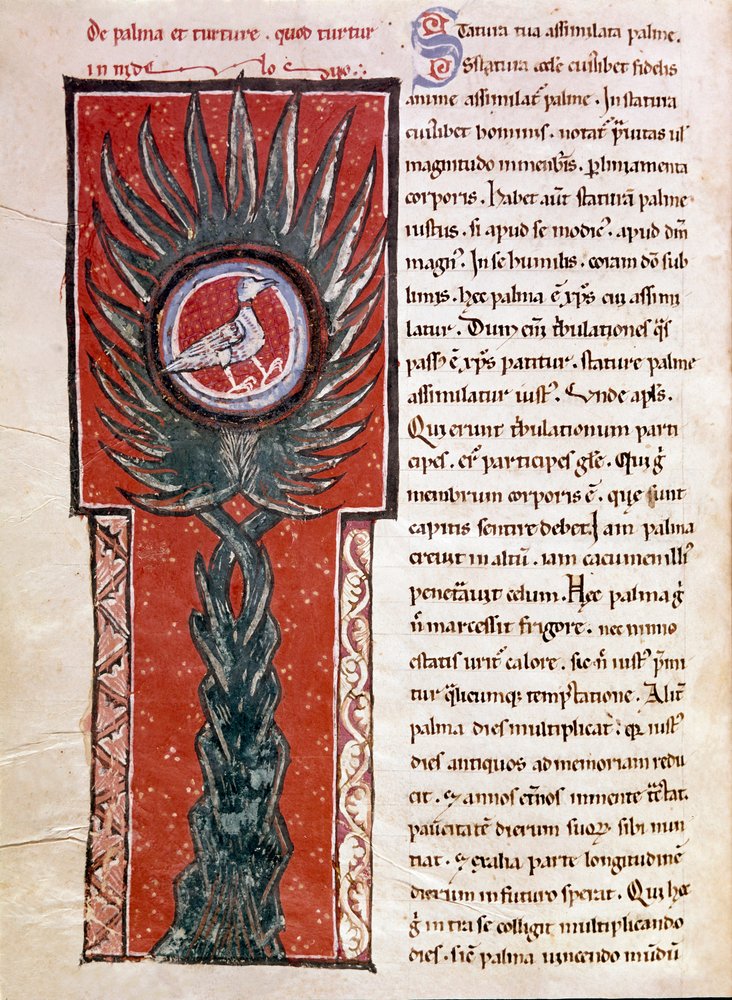 De palma et turture . quod turtur
in nido
Statura tua assimilata palme .
Statura ecclę cuiuslibet fidelis
anime assimilat᷑ palme . In statura
cuiuslibet hominis . notat᷑ puitas ul᷑
magnitudo in menbris . p liniamenta
corporis . Habet aut̄ staturā palme
iustus . si apud se modic᷒ . apud dm̄
magn᷒ . In se humilis . coram dō sub
limis . hec palma ē xp̄s cui assimi
latur . Dum eni᷑ tbulationes q̄s
passus ē xp̄s patitur . stature palme
assimilatur iust᷒ . Unde apl̄s .
Qui erunt tbulationum parti
cipes . er᷑ participes gl̄e . Qui g̊
membrum corporis ē . que sunt
capitis sentire debet . Iam palma
creuit in altū . iam cacumen illi᷒
penetᷓuit celum . Hec palma g̊
n̄ marcessit frigore . nec nimio
estatis urit᷑ calore . sic n̄ iust᷒ p̄mi
tur q̄licumq; temptatione . Alit᷑
palma dies multiplicat : q᷑ iust᷒
dies antiquos ad memoriam redu
cit . & annos et̄nos in mente tᷓctat .
paucitatē dierum suoꝝ sibi nun
tiat . & ex alia parte longitudinē
dierum in futuro sperat . Qui hec
g̊ intra se colligit multiplicando
dies . sic palma uincendo mūdū